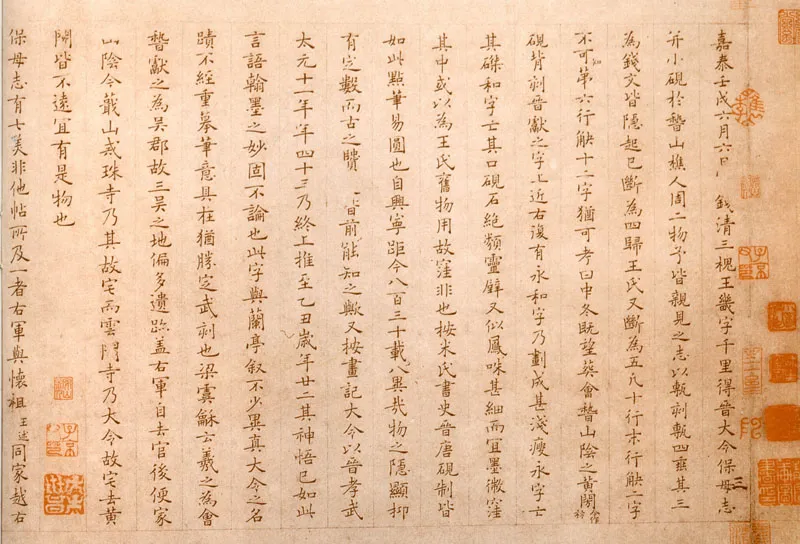 嘉泰壬戌六月六日錢清三槐王畿字千里得晉大令保母志
并小硯於稽山樵人周二物予皆親見之志以甎刻甎四垂其三
為錢文皆隱起已斷為四歸王氏又斷為五凡十行末行缺二字
不可知第六行缺十二字猶可考曰中冬既望葬會稽山陰之黃閍
硯背刻晉獻之字上近右復有永和字乃劃成甚淺瘦永字亡
其磔和字亡其口硯石絕類靈壁又似鳳咮甚細而宜墨微窪
其中或以為王氏舊物用故窪非也按米氏書史晉唐硯制皆
如此點筆易圓也自興寧距今八百三十載八異哉物之隱顯抑
有定數而古之賢皆前能知之歟又按畫記大令以晉孝武
太元十一年年四十三乃終上推至乙丑歲年廿二其神悟已如此
言語翰墨之妙固不論也此字與蘭亭敘不少異真大令之名
蹟不經重摹筆意具在猶勝定武刻也梁虞龢云羲之為會
稽獻之為吳郡故三吳之地偏多遺跡蓋右軍自去官後便家
山陰今蕺山戒珠寺乃其故宅而雲門寺乃大令故宅去黃
閍皆不遠宜有是物也
保母志有七美非他帖所及一者右軍與懷祖王述同家越右